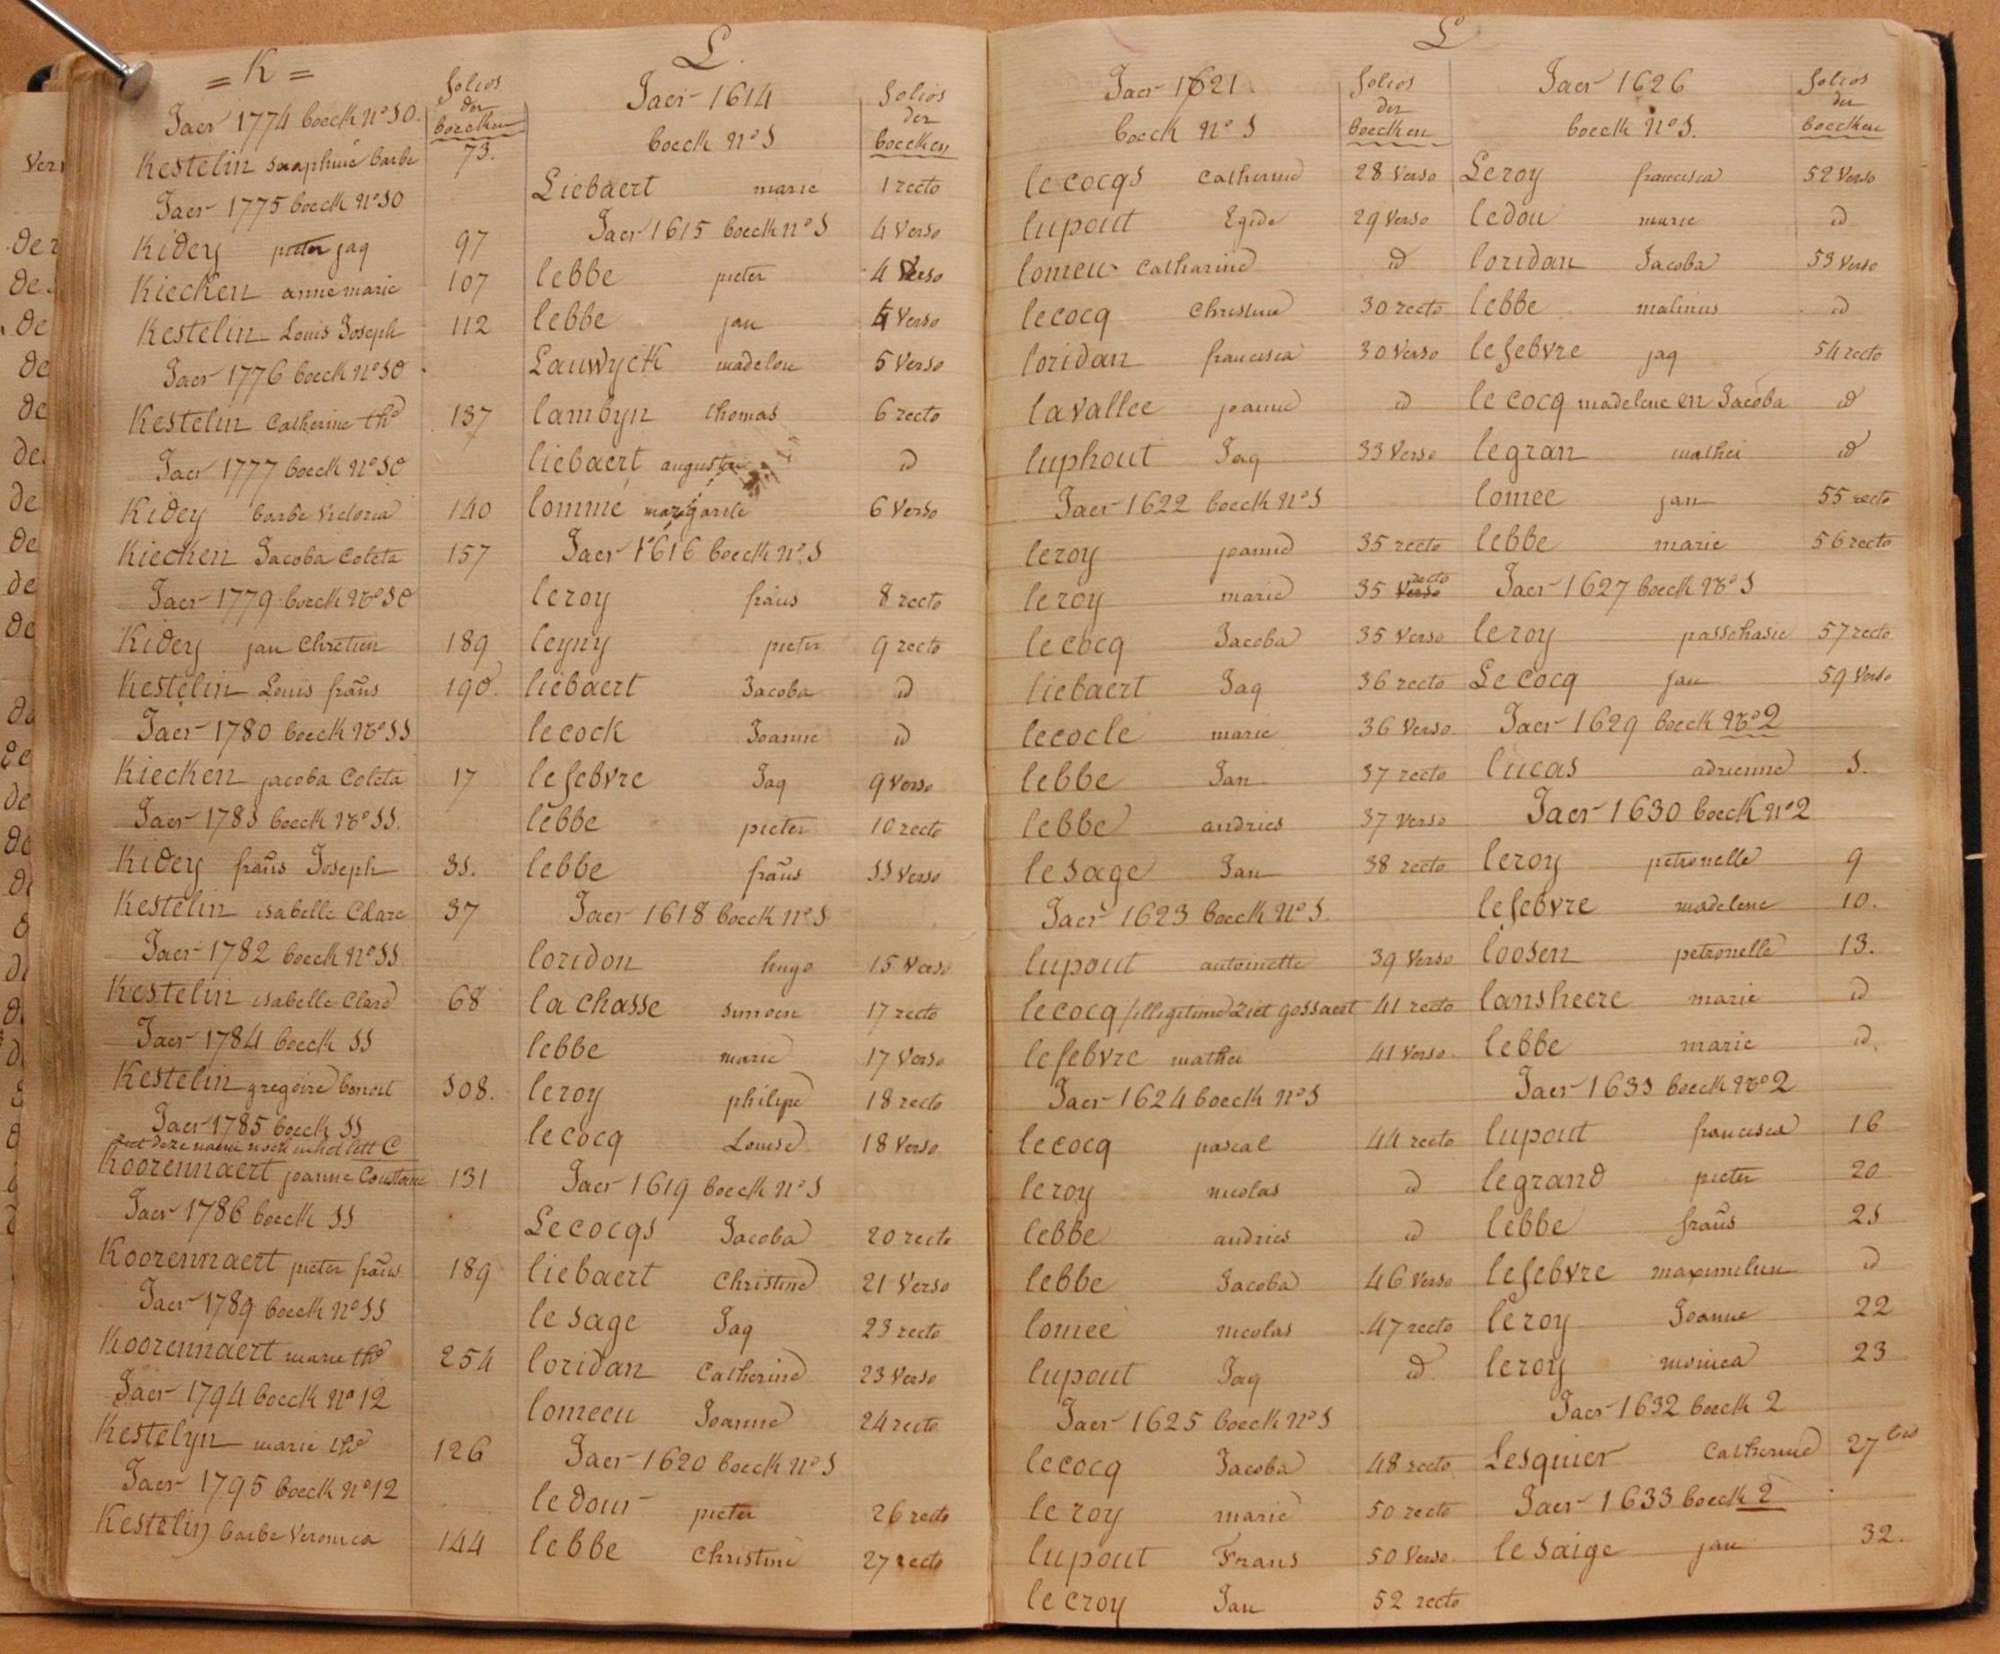 = K =
Folios
der
boecken
Jaer 1774 boeck Nº 10.
Kestelin seraphine barbe 73.
Jaer 1775 boeck nº 10
Kidey pieter jaq 97
Kiecken anne marie 107
Kestelin Louis Joseph 112
Jaer 1776 boeck nº 10
Kestelin Catherine thᵉ 137
Jaer 1777 boeck nº 10
Kidey barbe Victoria 140
Kiecken Jacoba Coleta 157
Jaer 1779 boeck nº 10
Kidey jan Chretien 189
Kestelin Louis frans 190.
Jaer 1780 boeck nº 11
Kiecken jacoba Coleta 17
Jaer 1781 boeck nº 11.
Kidey frans Joseph 31.
Kestelin isabelle Clare 37
Jaer 1782 boeck nº 11
Kestelin isabelle Clare 68
Jaer 1784 boeck 11
Kestelin gregoire benoit 108.
Jaer 1785 boeck 11
ziet deze naem noch in het lett C
Koorennaert joanne Constance 131
Jaer 1786 boeck 11
Koorennaert pieter frans 189
Jaer 1789 boeck nº 11
Koorennaert marie thᵉ 254
Jaer 1794 boeck nº 12
Kestelyn marie thᵉ 126
Jaer 1795 boeck nº 12
Kestelin barbe Veronica 144
L.
Jaer 1614
boeck nº 1
Folios
der
boecken
Liebaert marie 1 recto
Jaer 1615 boeck nº 1 4 Verso
lebbe pieter 4 Verso
lebbe jan 4 Verso
Lauwyck madelon 5 Verso
lamoyn thomas 6 recto
liebaert augustin id
lommé margarite 6 Verso
Jaer 1616 boeck nº 1
leroy frans 8 recto
leyny pieter 9 recto
liebaert Jacoba id
lecock Joanne id
lefebvre Jaq 9 Verso
lebbe pieter 10 recto
lebbe frans 11 Verso
Jaer 1618 boeck nº 1
loridon hugo 15 Verso
la chasse simoen 17 recto
lebbe marie 17 Verso
leroy philipe 18 recto
lecocq Louise 18 Verso
Jaer 1619 boeck nº 1
Lecocqs Jacoba 20 recto
liebaert Christine 21 Verso
lesage Jaq 23 recto
loridan Catherine 23 Verso
lomeeu Joanne 24 recto
Jaer 1620 boeck nº 1
ledour pieter 26 recto
lebbe Christine 27 recto
L
Jaer 1621
boeck nº 1
Folios
der
boecken
lecocqs Catherine 28 Verso
lupout Egide 29 Verso
lomeu Catharine id
lecocq Christine 30 recto
loridan francisca 30 Verso
lavallee joanne id
luphout Jaq 33 Verso
Jaer 1622 boeck nº 1
leroy joanne 35 recto
leroy marie 35 Verso recto
lecocq Jacoba 35 Verso
liebaert Jaq 36 recto
lecocle marie 36 Verso
lebbe Jan 37 recto
lebbe andries 37 Verso
lesage Jan 38 recto
Jaer 1623 boeck nº 1.
lupout antoinette 39 Verso
lecocq illegitime ziet gossaert 41 recto
lefebvre mathei 41 Verso
Jaer 1624 boeck nº 1
lecocq pascal 44 recto
leroy nicolas id
lebbe andries id
lebbe Jacoba 46 Verso
lomeé nicolas 47 recto
lupout Jaq id
Jaer 1625 boeck nº 1
lecocq Jacoba 48 recto
leroy marie 50 recto
lupout Frans 50 Verso
lecroy Jan 52 recto
Jaer 1626
boeck nº 1.
Folios
der
boecken
Leroy francisca 52 Verso
ledou marie id
loridan Jacoba 53 Verso
lebbe malinus id
lefebvre jaq 54 recto
lecocq madelene en Jacoba id
legran mathei id
lomee jan 55 recto
lebbe marie 56 recto
Jaer 1627 boeck nº 1
leroy passchasie 57 recto
Lecocq jan 59 Verso
Jaer 1629 boeck nº 2
lucas adrienne 1.
Jaer 1630 boeck nº 2
leroy petronelle 9
lefebvre madelene 10.
loosen petronelle 13.
lansheere marie id
lebbe marie id.
Jaer 1631 boeck nº 2
lupout francisca 16
legrand pieter 20
lebbe frans 21
lefebvre maximelien id
leroy Joanne 22
leroy monica 23
Jaer 1632 boeck 2
Lesquier Catherine 27 bis
Jaer 1633 boeck 2
lesaige jan 32.